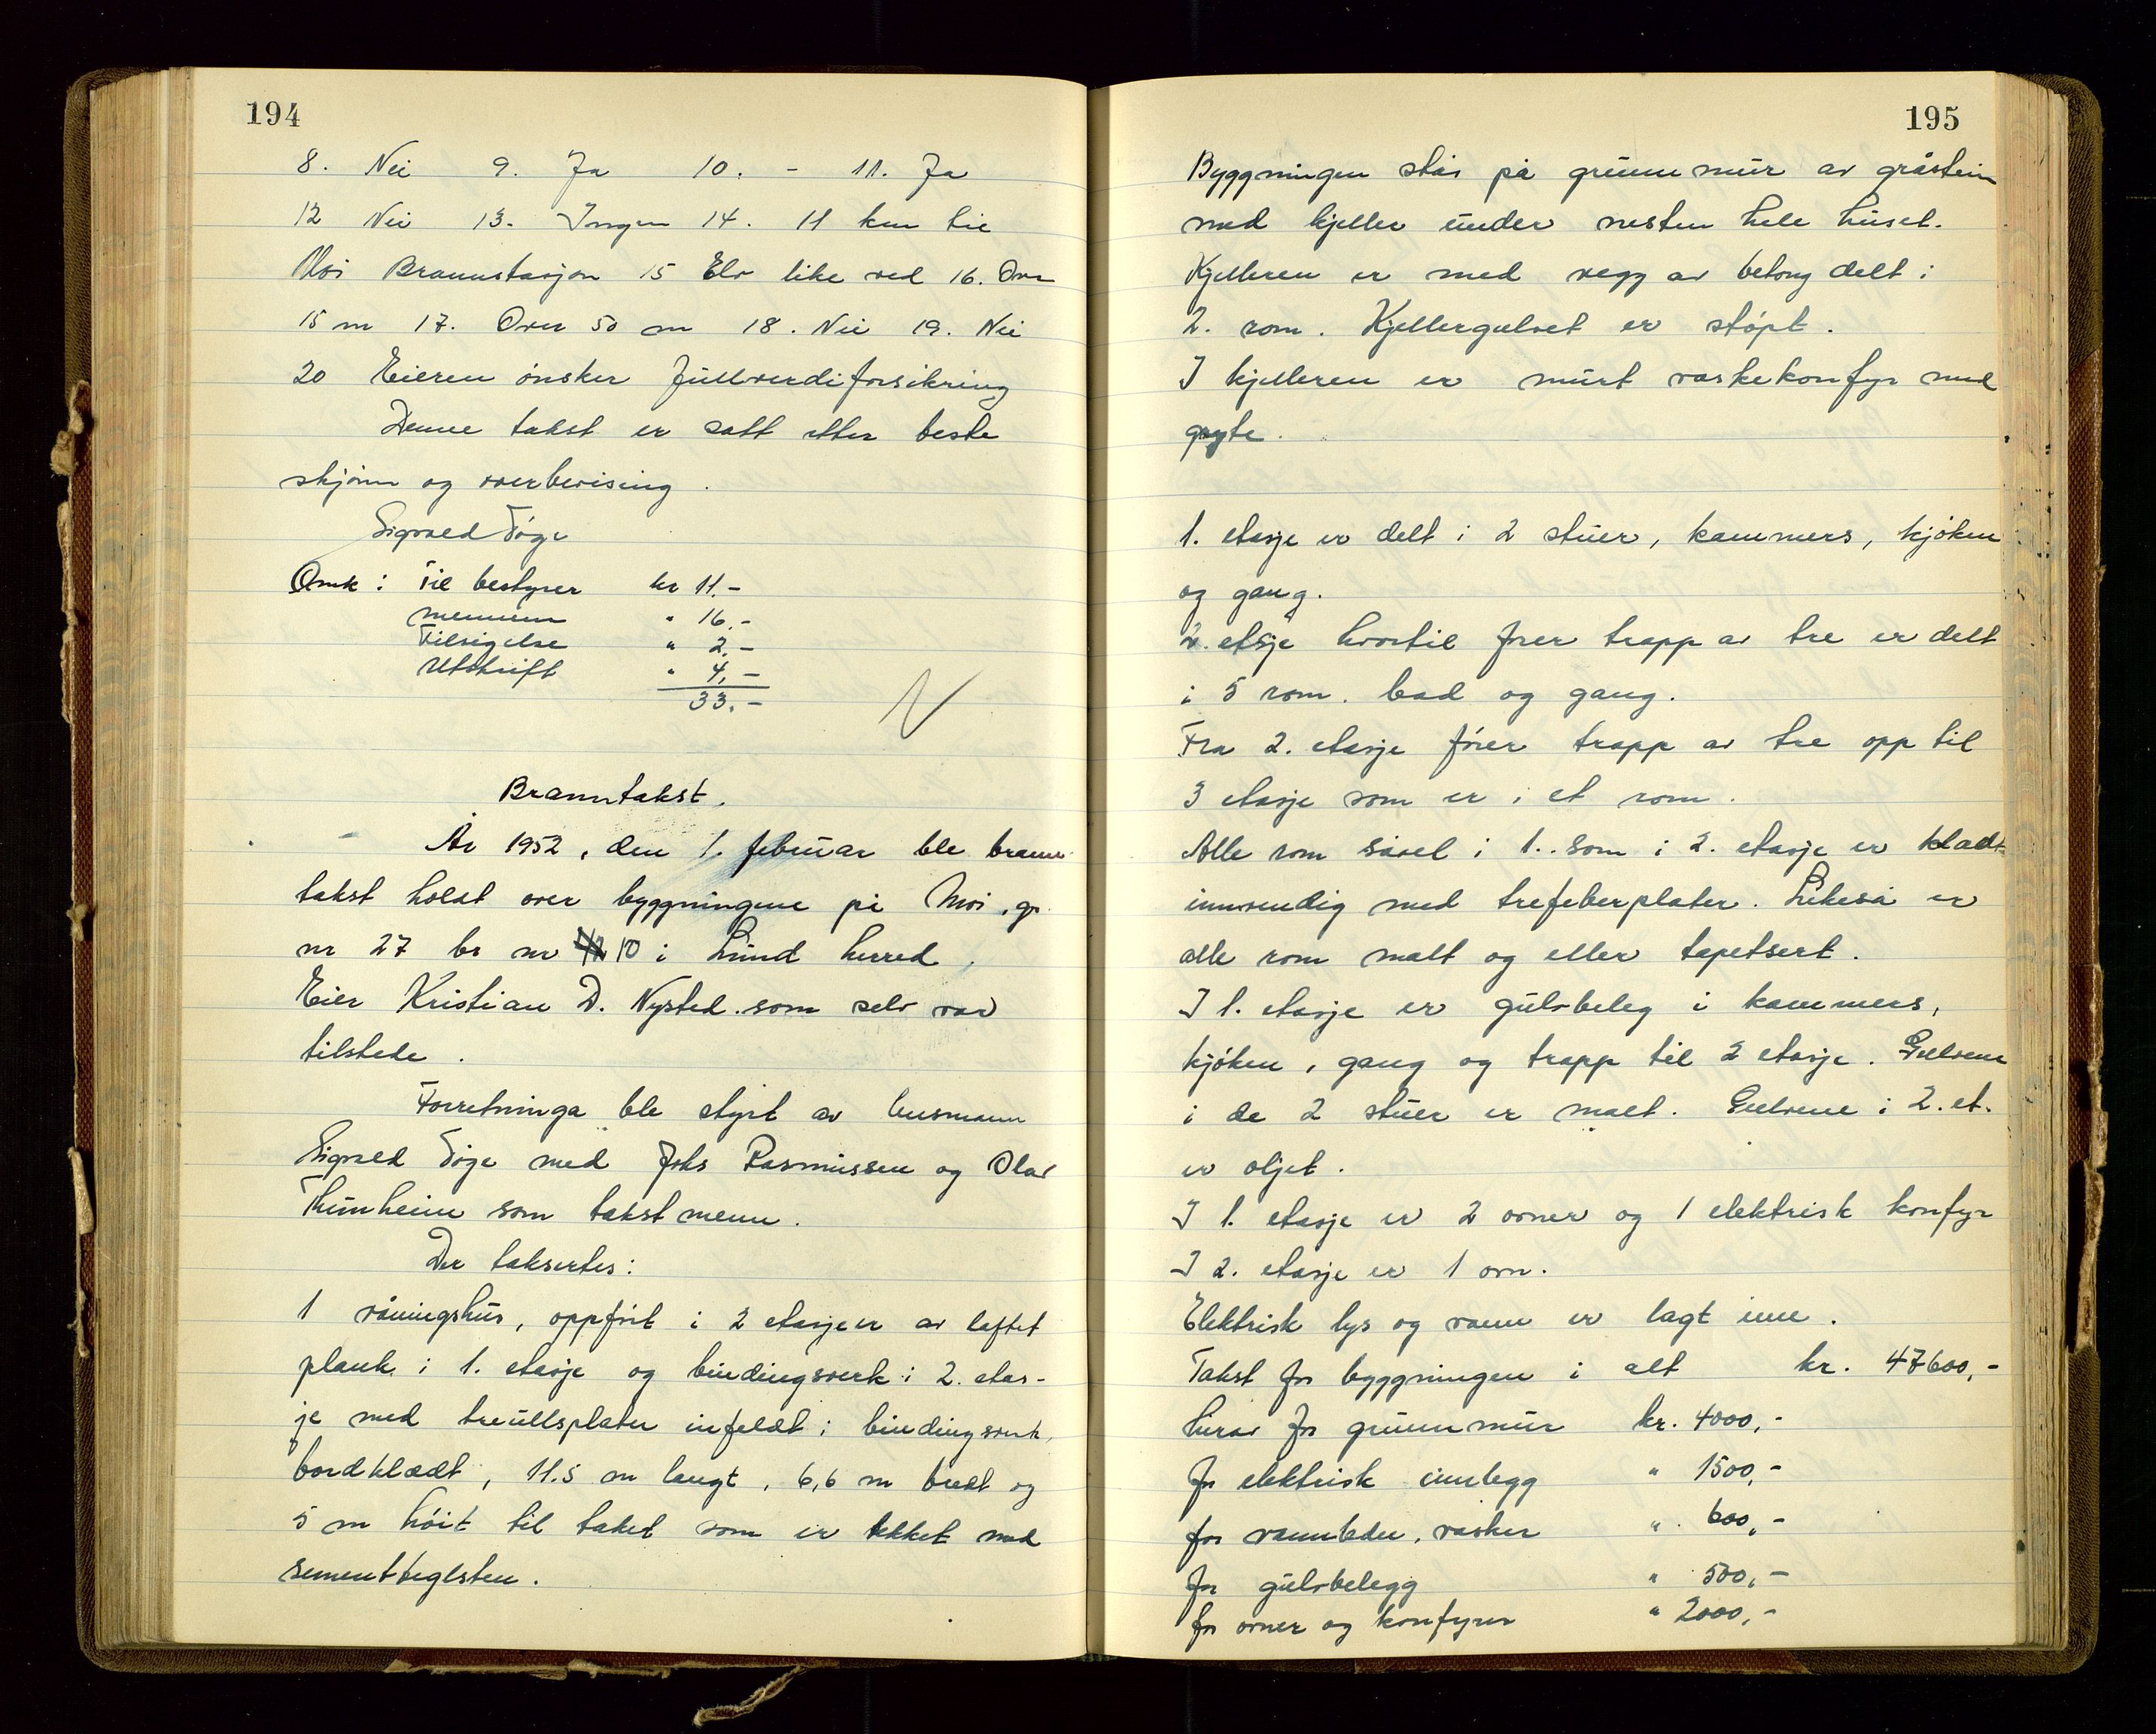 194
8. Nei 9. Ja 10. - 11. Ja
12 Nei 13. Ingen 14. 11 km til
Moi Brannstasjon 15 Elv like ved 16. Over
15 m 17. Over 50 m 18. Nei 19. Nei
20 Eieren ønsker fullverdiforsikring
Denne takst er satt etter beste
skjønn og overbevising.
Sigvald Tøge
Omk: Til bestyrer kr 11.-
mennene " 16.-
Tilsigelse " 2.-
Utskrift " 4.-
33.-
Branntakst.
År 1952, den 1. februar ble brann-
takst holdt over byggningene på Moi, gr.
nr 27 br nr 10 i Lund herred.
Eier Kristian D. Nysted som selv var
tilstede.
Forretninga ble styrt av lensmann
Sigvald Tøge med Johs Rasmussen og Olav
Thunheim som takstmenn.
Der taksertes:
1 våningshus, oppført i 2 etasjer av laftet
plank i 1. etasje og bindingsverk i 2. etas-
je med treullsplater infeldt i bindingsverk,
bordklædt, 11.5 m langt, 6,6 m bredt og
5 m høit til taket som er tekket med
sementteglsten.
195
Byggningen står på grunnmur av gråstein
med kjeller under nesten hele huset.
Kjelleren er med vegg av betong delt i
2. rom. Kjellergulvet er støpt.
I kjelleren er murt vaskekomfyr med
gryte.
1. etasje er delt i 2 stuer, kammers, kjøken
og gang.
2. etasje hvortil fører trapp av tre er delt
i 5 rom. bad og gang.
Fra 2. etasje fører trapp av tre opp til
3 etasje som er i et rom.
Alle rom såvel i 1.. som i 2. etasje er kladt
innvendig med trefeberplater. Likeså er
alle rom malt og eller tapetsert.
I 1. etasje er gulvbeleg i kammers,
kjøken, gang og trapp til 2 etasje. Gulvene
i de 2 stuer er malt. Gulvene i 2. et.
er oljet.
I 1. etasje er 2 ovner og 1 elektrisk komfyr
I 2. etasje er 1 ovn.
Elektrisk lys og vann er lagt inn.
Takst for byggningen i alt kr. 47600,-
herav for grunnmur kr. 4000,-
for elektrisk innlegg " 1500,-
for vannleder, vasker " 600,-
for gulvbelegg " 500,-
for ovner og komfyrer " 2000,-